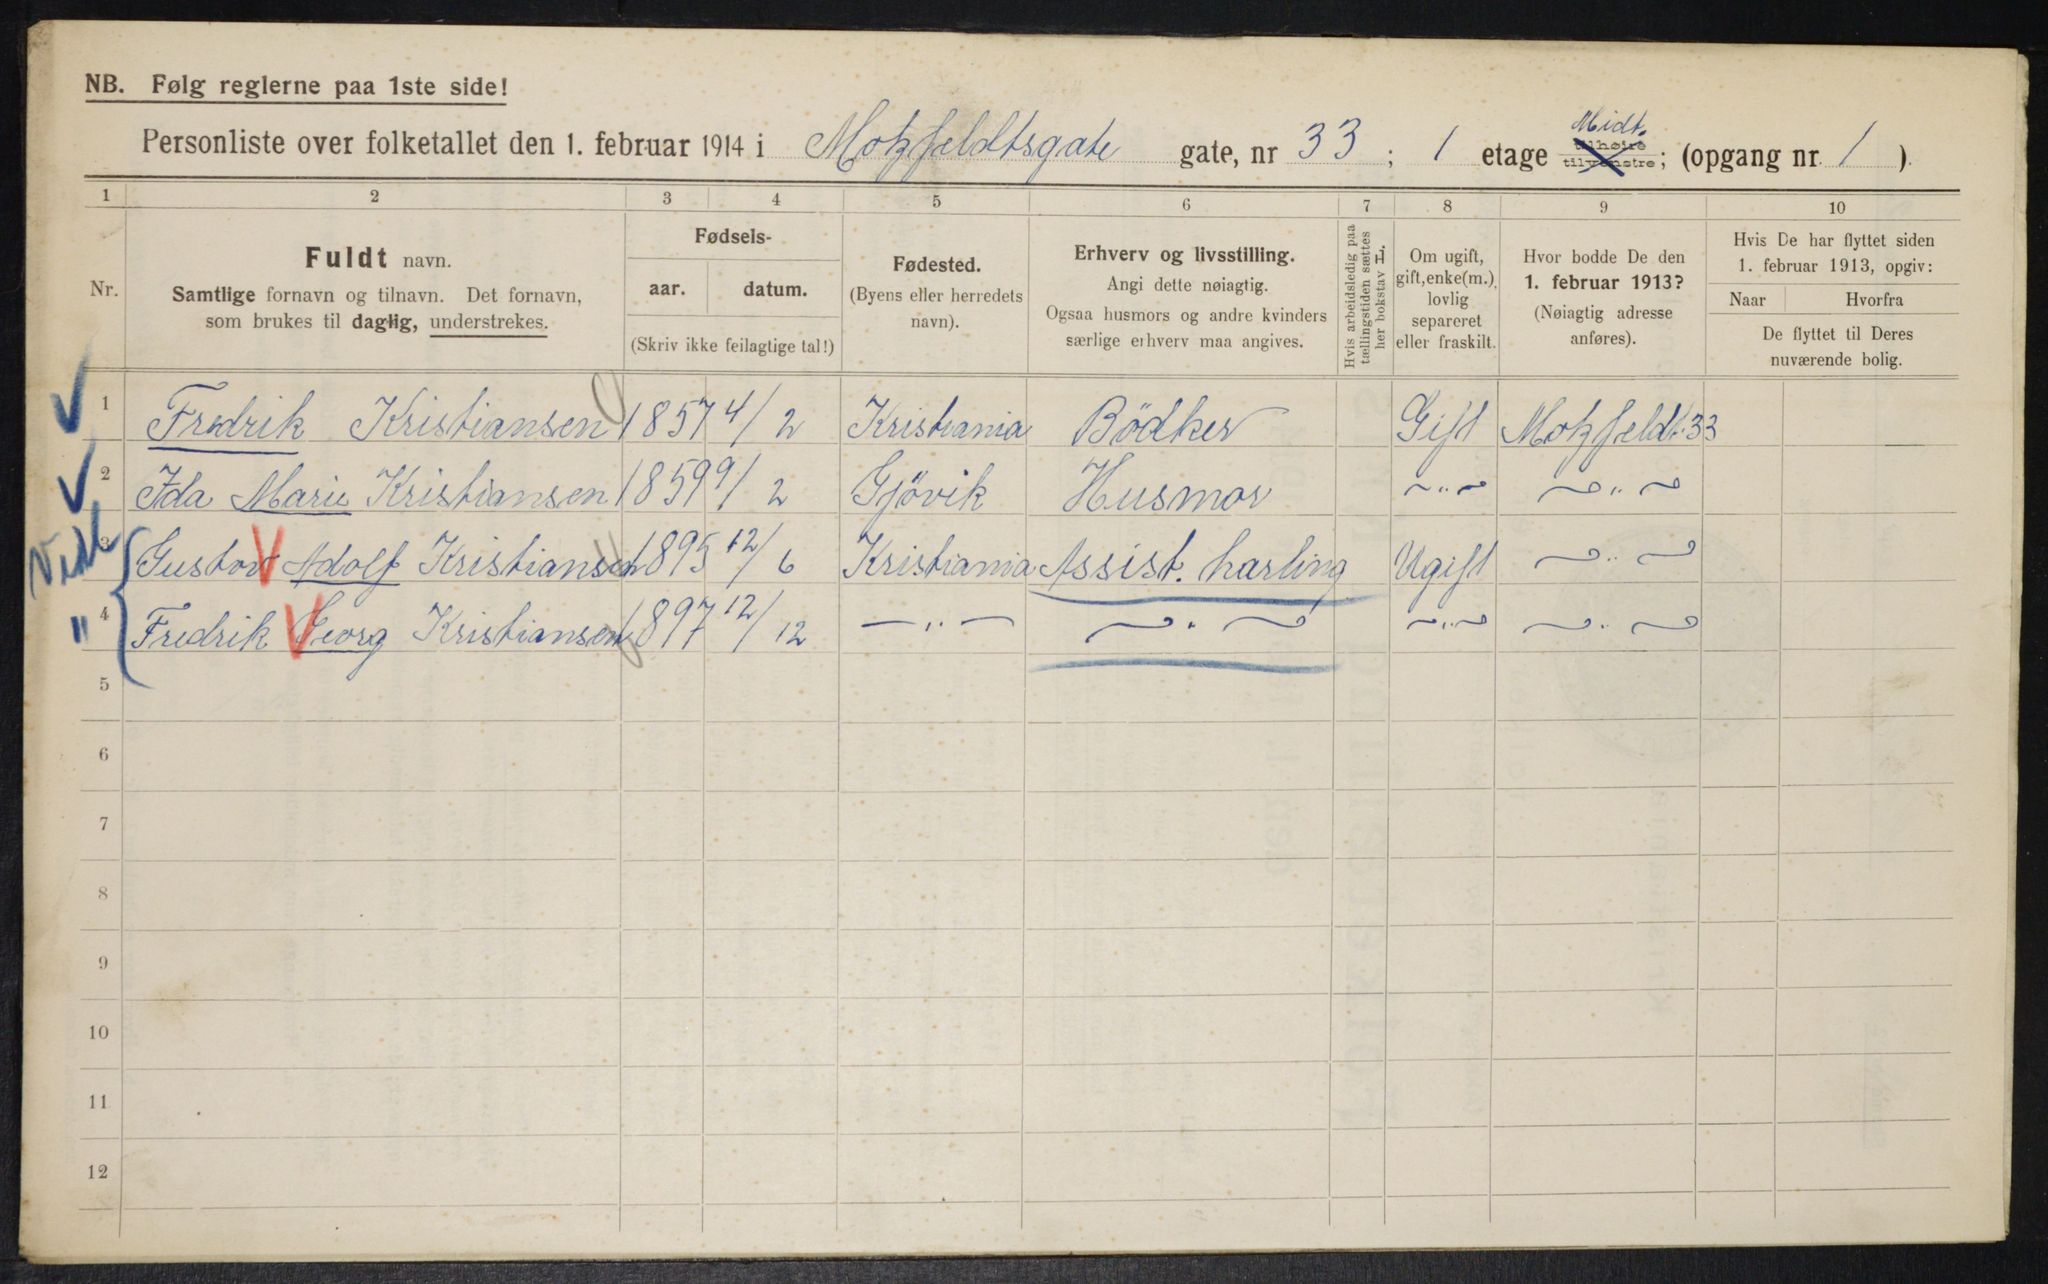 NB. Følg reglerne paa 1ste side!
Personliste over folketallet den 1. februar 1914 i Motzfeldtsgate gate, nr 33; 1 etage Midt. tilhøire tilvenstre; (opgang nr. 1)
1 2 3 4 5 6 7 8 9 10
Nr.
Fuldt navn.
Samtlige fornavn og tilnavn. Det fornavn,
som brukes til daglig, understrekes.
Fødsels-
aar. datum.
(Skriv ikke feilagtige tal!)
Fødested.
(Byens eller herredets
navn).
Erhverv og livsstilling.
Angi dette nøiagtig.
Ogsaa husmors og andre kvinders
særlige erhverv maa angives.
Hvis arbeidsledig paa
tællingstiden sættes
her bokstav L.
Om ugift,
gift, enke(m.),
lovlig
separeret
eller fraskilt.
Hvor bodde De den
1. februar 1913?
(Nøiagtig adresse
anføres).
Hvis De har flyttet siden
1. februar 1913, opgiv:
Naar Hvorfra
De flyttet til Deres
nuværende bolig.
1 Fredrik Kristiansen 1857 4/2 Kristiania Bödker Gift Motzfeldt. 33
2 Ida Marie Kristiansen 1859 9/2 Gjövik Husmor ~ " ~ ~ " ~
3 Gustav Adolf Kristiansen 1895 12/6 Kristiania Assist. harling Ugift ~ " ~
" 4 Fredrik Georg Kristiansen 1897 12/12 — " — ~ " ~ ~ " ~ ~ " ~
5
6
7
8
9
10
11
12